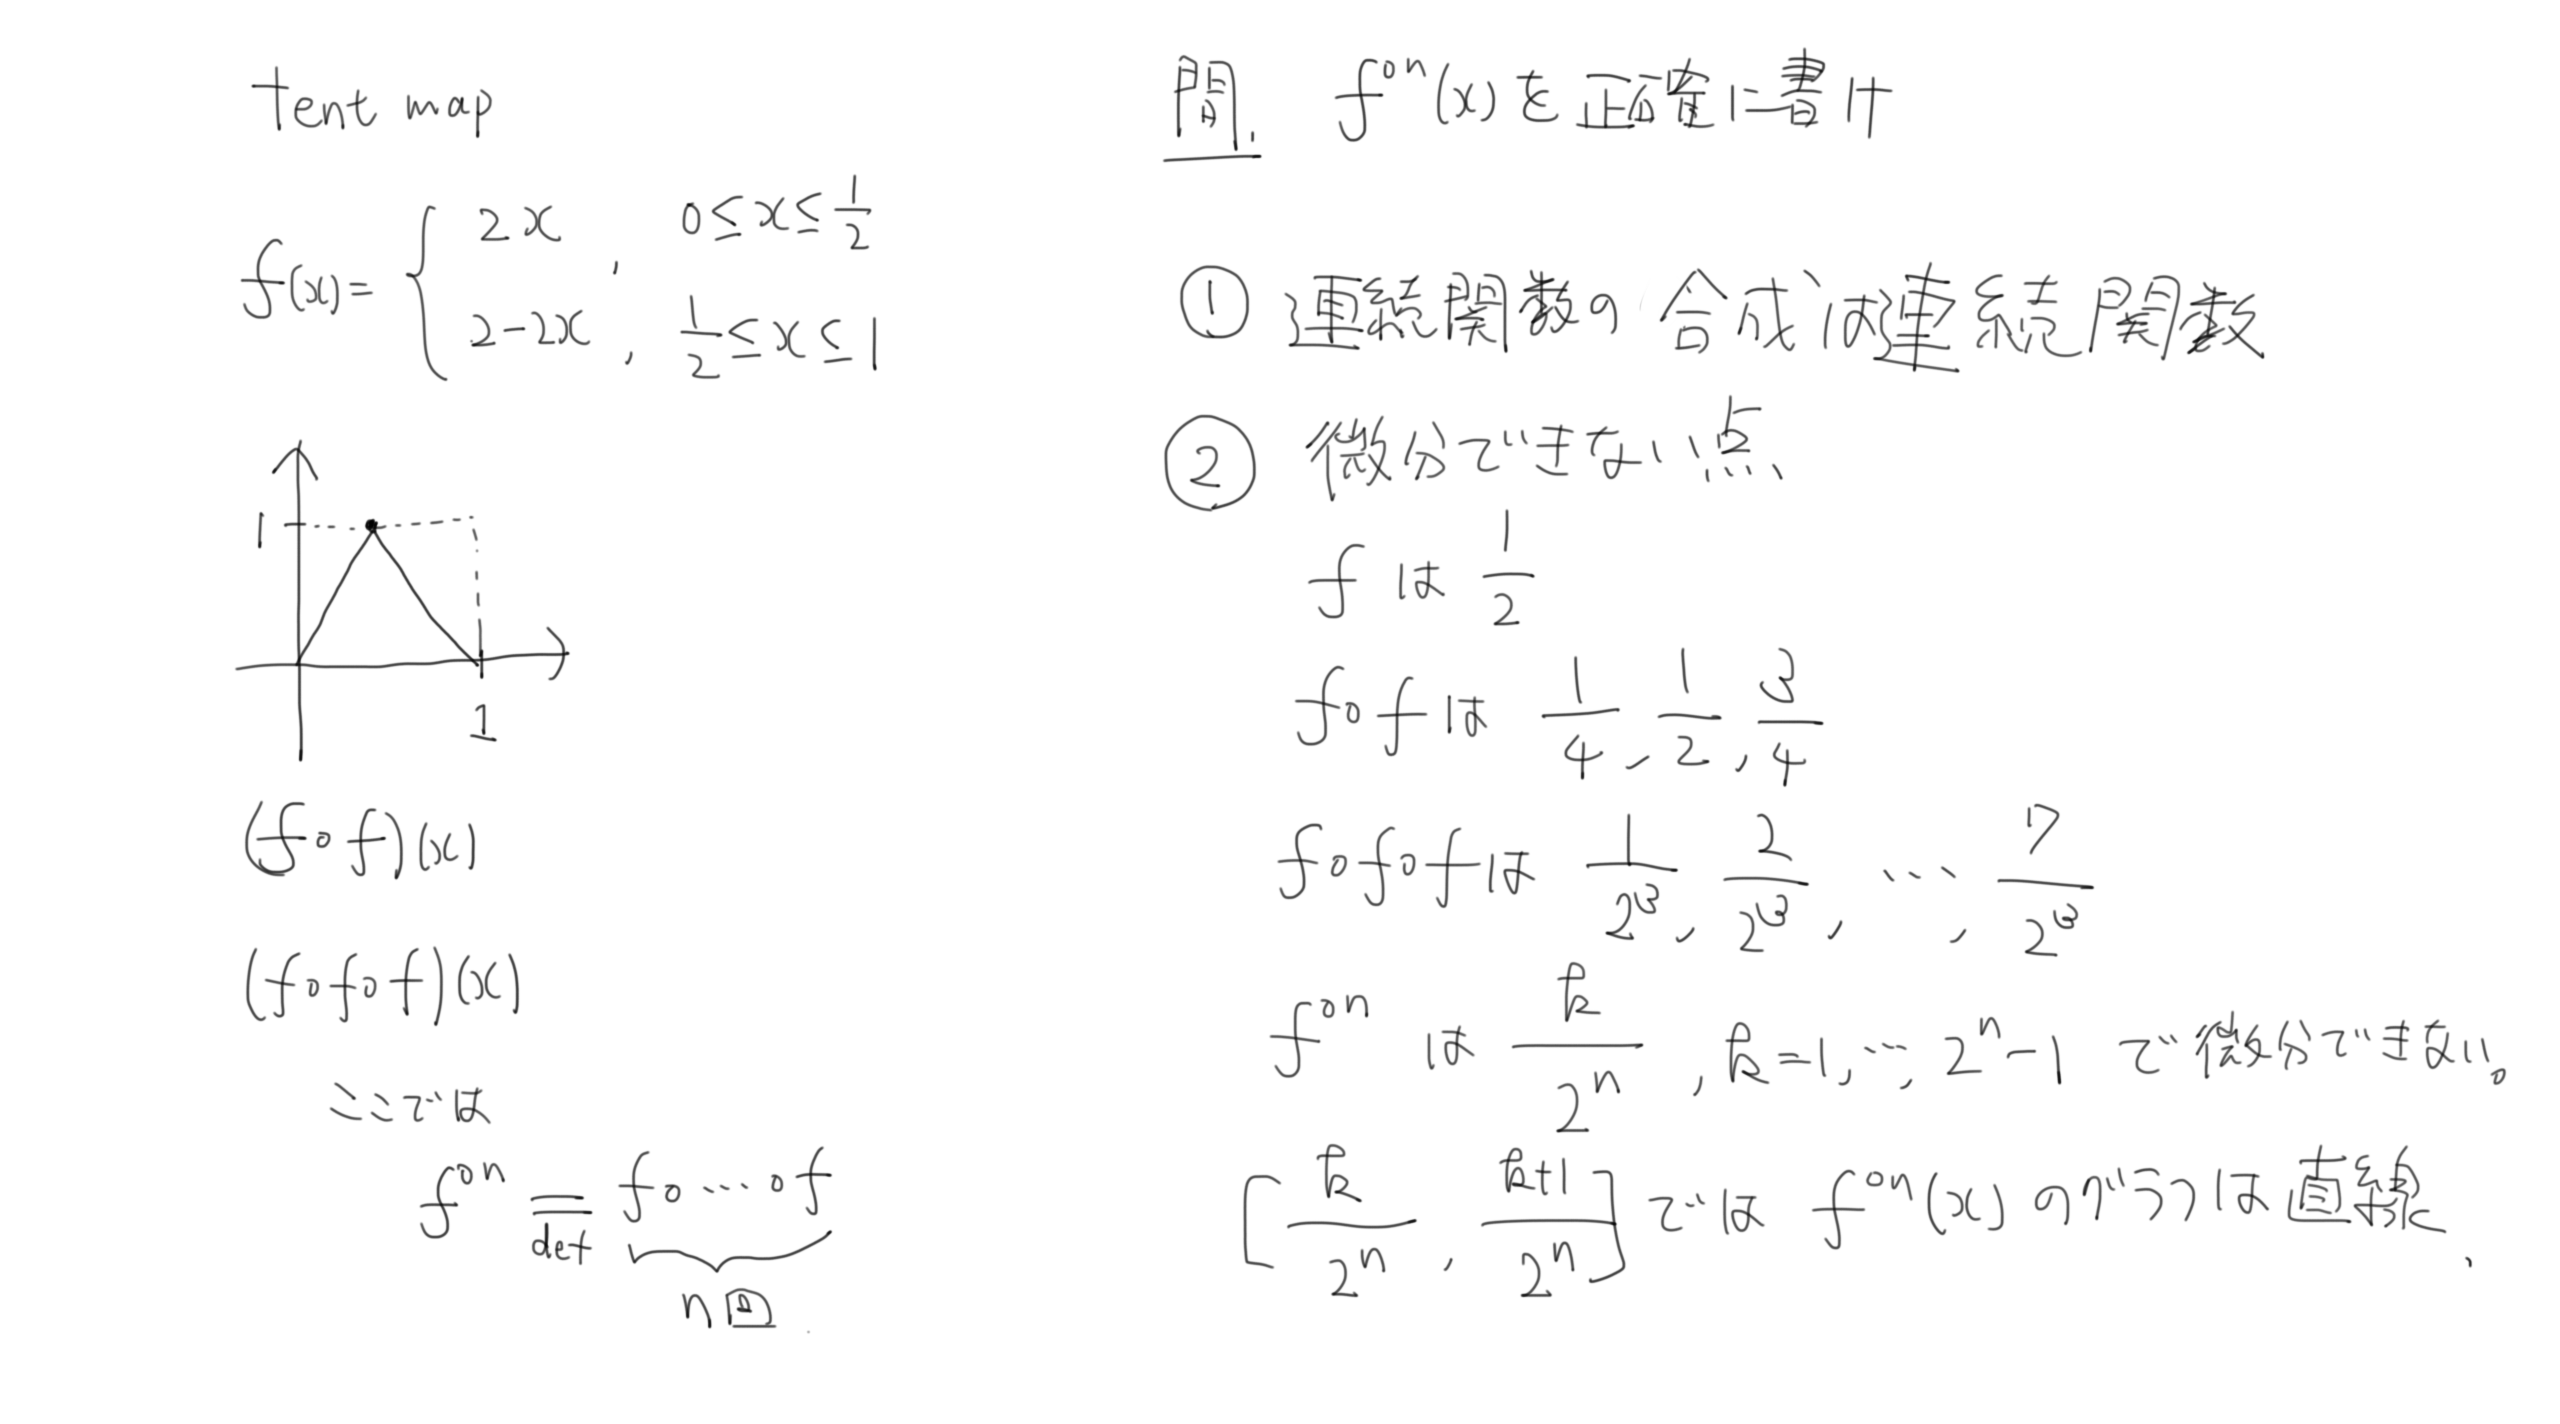 tent map
f(x) = { 2x , 0 ≤ x ≤ 1/2
2-2x , 1/2 ≤ x ≤ 1
1
1
(f∘f)(x)
(f∘f∘f)(x)
ここでは
f^{∘n} =_{def} f∘…∘f
n回
問. f^{∘n}(x)を正確に書け
① 連続関数の合成は連続関数
② 微分できない点
f は 1/2
f∘f は 1/4, 1/2, 3/4
f∘f∘f は 1/2^3, 2/2^3, …, 7/2^3
f^{∘n} は k/2^n, k=1,…,2^n-1 で微分できない。
[k/2^n, k+1/2^n] では f^{∘n}(x) のグラフは直線、